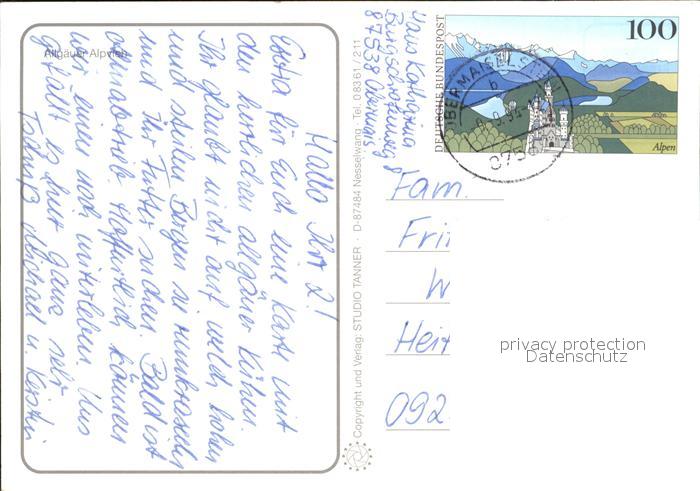 Allgäuer Alpvieh
Hallo Ihr 2!
Extra für Euch eine Karte mit
den herrlichen allgäuer Kühen.
Ihr glaubt nicht auf welch hohen
und steilen Bergen sie rumkraxeln
und Ihr Futter suchen. Bald ist
Almabtrieb. Hoffentlich können
wir einen noch miterleben. Uns
gefällt es hier ganz sehr
Tschüß Michael u. Kerstin
Copyright und Verlag: STUDIO TANNER · D-87484 Nesselwang · Tel. 0 83 61 / 2 11
Haus Katharina
87538 Obermais.
DEUTSCHE BUNDESPOST
100
Alpen
OBERMAISELSTEIN
b
8753
Fam.
Fri
W
Heit
092
privacy protection
Datenschutz